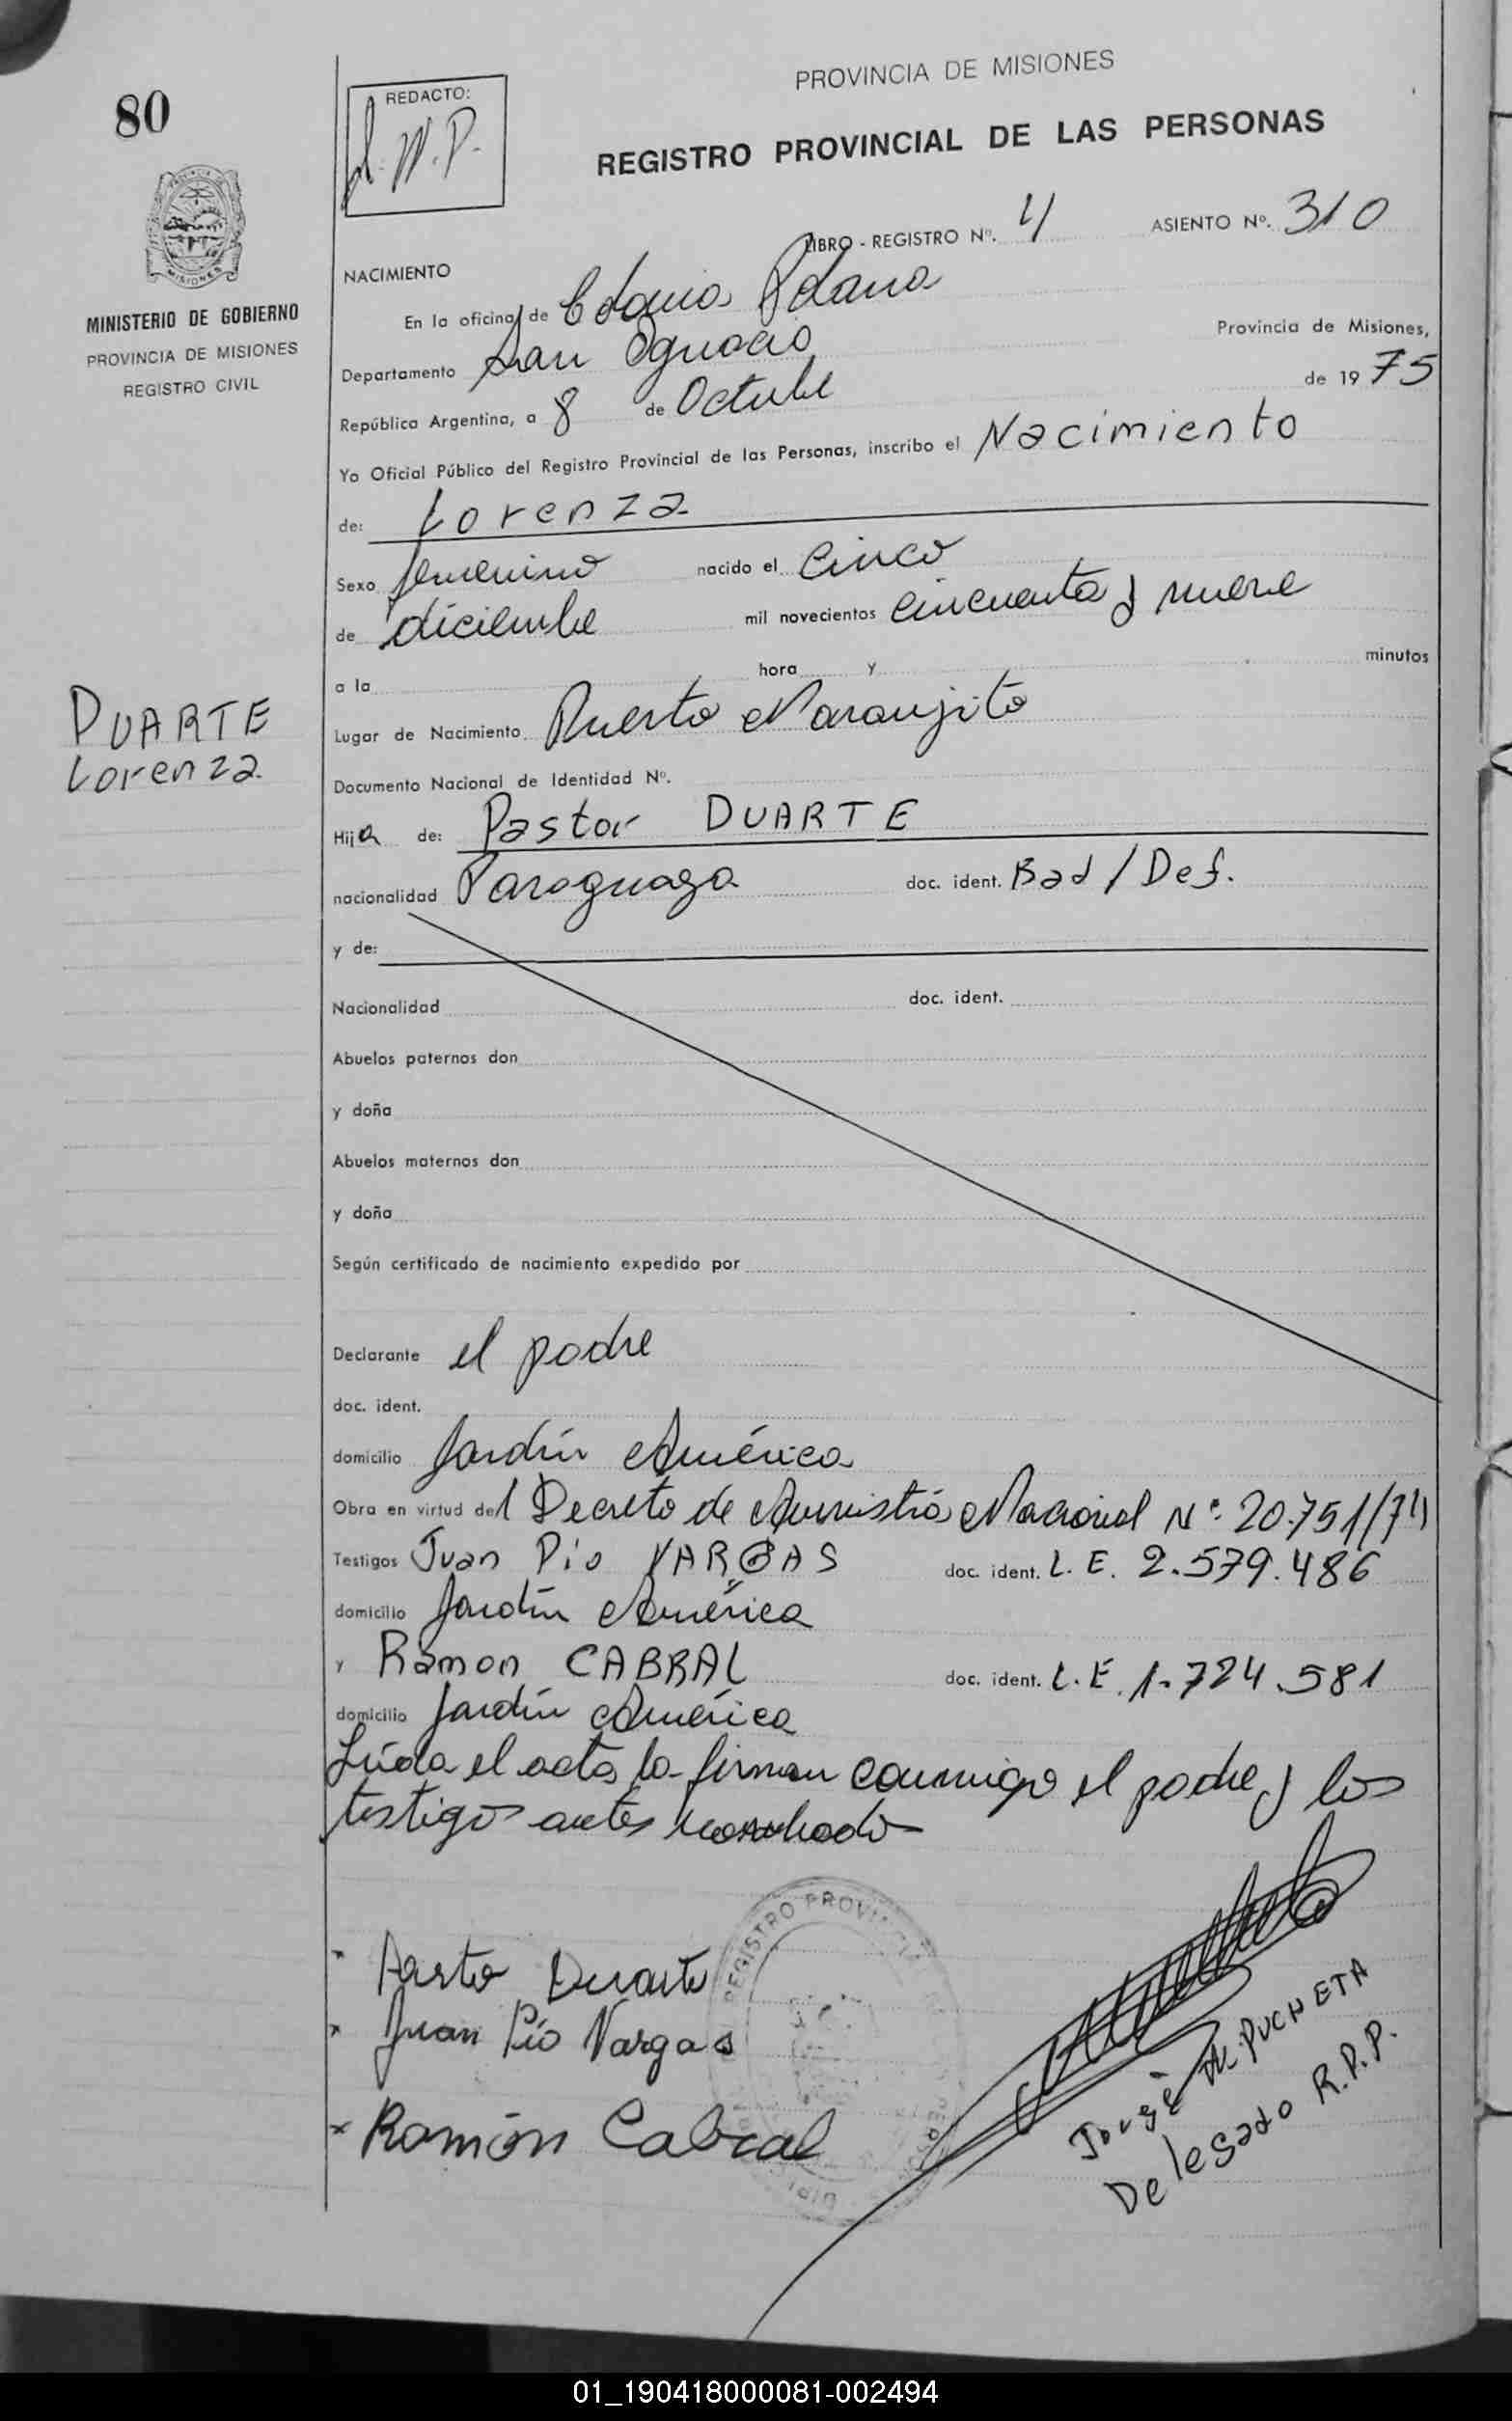 80
REDACTO:
PROVINCIA DE MISIONES
REGISTRO PROVINCIAL DE LAS PERSONAS
LIBRO - REGISTRO Nº. 4 ASIENTO Nº. 310
MINISTERIO DE GOBIERNO
PROVINCIA DE MISIONES
REGISTRO CIVIL
NACIMIENTO
En la oficina de Colonia
Departamento San Ignacio Provincia de Misiones,
República Argentina, a 8 de Octubre de 1975
Yo Oficial Público del Registro Provincial de las Personas, inscribo el Nacimiento
de: Lorenza
Sexo femenino nacido el Cinco
de diciembre mil novecientos cincuenta y nueve
a la hora y minutos
DUARTE
Lorenza
Lugar de Nacimiento Puerto Naranjito
Documento Nacional de Identidad Nº.
Hija de: Pastor DUARTE
nacionalidad Paraguaya doc. ident. Bad / Def.
y de:
Nacionalidad doc. ident.
Abuelos paternos don
y doña
Abuelos maternos don
y doña
Según certificado de nacimiento expedido por
Declarante el padre
doc. ident.
domicilio Jardín América
Obra en virtud del Decreto de Amnistía Nacional Nº 20.751/74
Testigos Juan Pio VARGAS doc. ident. L. E. 2.579.486
domicilio Jardín América
y Ramon CABRAL doc. ident. L. E. 1.724.581
domicilio Jardín América
Leída el acta la firman conmigo el padre y los
testigos antes
REGISTRO PROVINCIAL
Duarte
Juan Pío Vargas
Ramón Cabral
José M. PUCHETA
Delegado R.P.P.
01_190418000081-002494